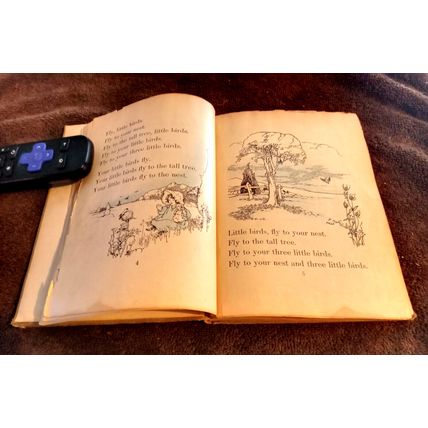 Fly, little birds.
Fly to your nest.
Fly to the tall tree, little birds.
Fly to your little birds.
Fly to your three little birds.
Your little birds fly.
Your little birds fly to the tall tree.
Your little birds fly to the nest.
4
Little birds, fly to your nest.
Fly to the tall tree.
Fly to your three little birds.
Fly to your nest and three little birds.
5